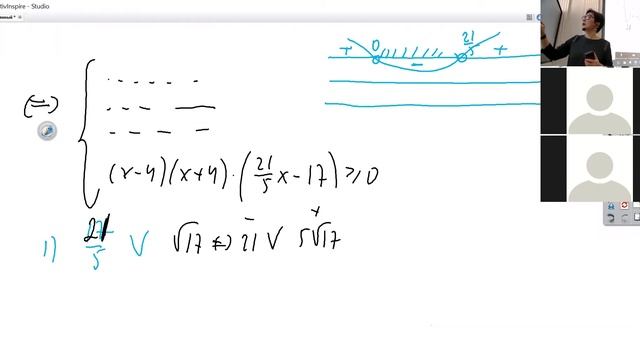 tivInspire - Studio
+ 0 - 21/5 +
⇔ {
(x-4)(x+4)·(21/5 x - 17) ≥ 0
1) 21/5 V √17 ⇔ 21 V 5√17
- +